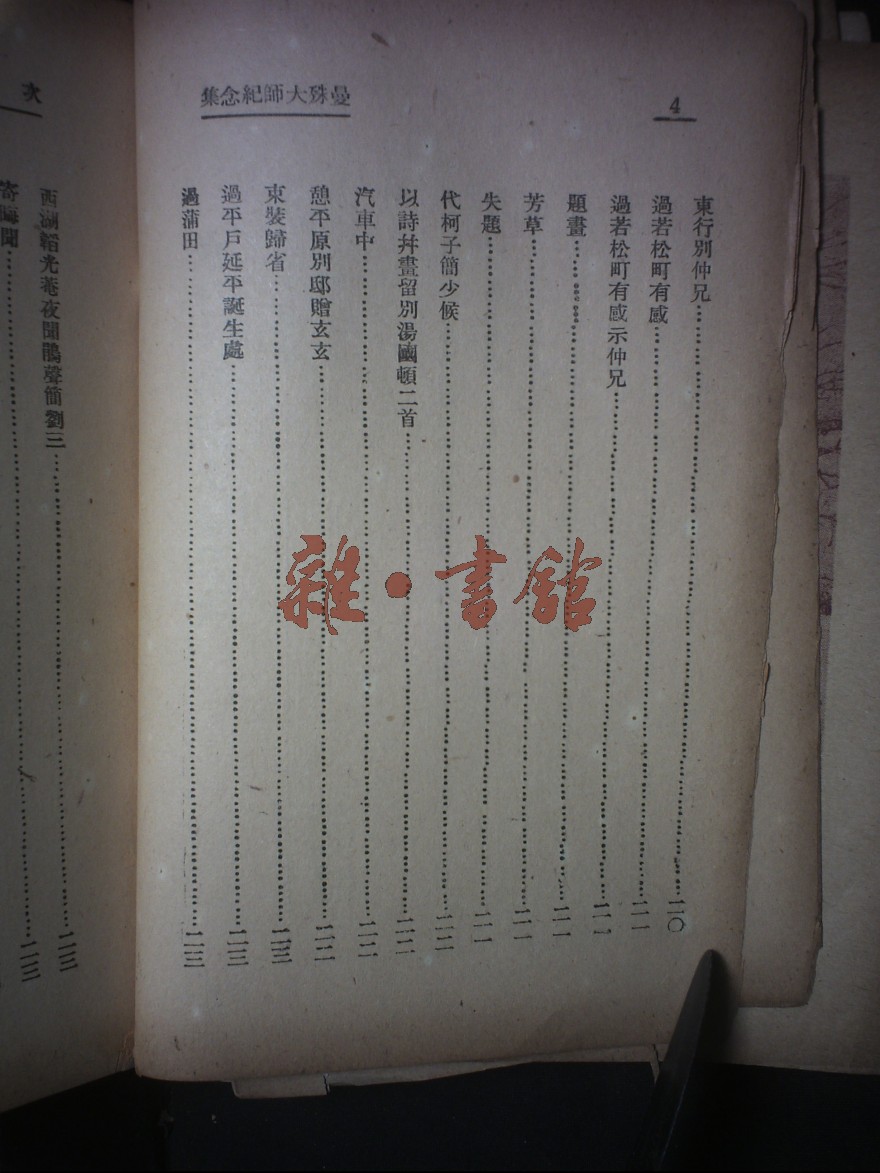 4
曼殊大師紀念集
東行別仲兄……二〇
過若松町有感……二一
過若松町有感示仲兄……二一
題畫……二一
芳草……二一
失題……二一
代柯子簡少候……二二
以詩幷畫留別湯國頓二首……二二
汽車中……二二
憩平原別邸贈玄玄……二二
束裝歸省……二三
過平戶延平誕生處……二三
過蒲田……二三
次
西湖韜光菴夜聞鵑聲簡劉三……二三
寄晦聞……二三
雜·書館